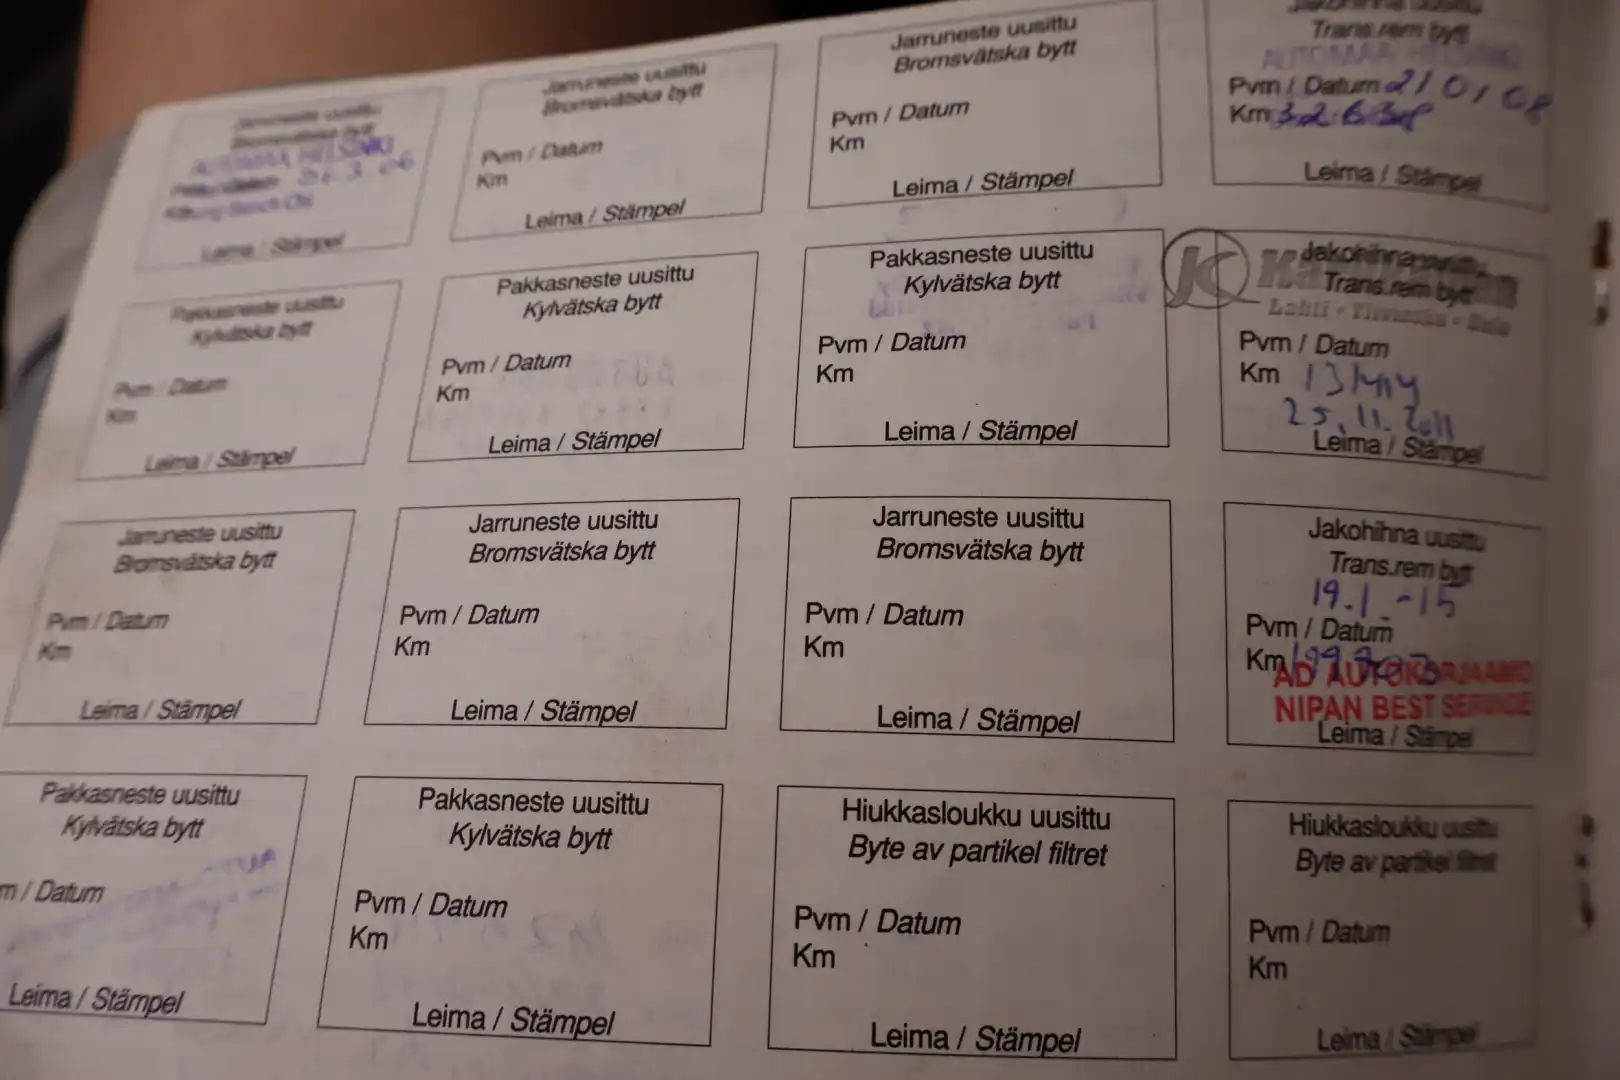 Jarruneste uusittu
Bromsvätska bytt
AUTOMAA HELSINKI
Leima / Stämpel
Jarruneste uusittu
Bromsvätska bytt
Pvm / Datum
Km
Leima / Stämpel
Jarruneste uusittu
Bromsvätska bytt
Pvm / Datum
Km
Leima / Stämpel
Jakohihna uusittu
Trans.rem bytt
AUTOMAA HELSINKI
Pvm / Datum 21 01 08
Km 32638
Leima / Stämpel
Pakkasneste uusittu
Kylvätska bytt
Pvm / Datum
Km
Leima / Stämpel
Pakkasneste uusittu
Kylvätska bytt
Pvm / Datum
Km
Leima / Stämpel
Pakkasneste uusittu
Kylvätska bytt
Pvm / Datum
Km
Leima / Stämpel
Jakohihna uusittu
Trans.rem bytt
Pvm / Datum
Km
25.11.2011
Leima / Stämpel
Jarruneste uusittu
Bromsvätska bytt
Pvm / Datum
Km
Leima / Stämpel
Jarruneste uusittu
Bromsvätska bytt
Pvm / Datum
Km
Leima / Stämpel
Jarruneste uusittu
Bromsvätska bytt
Pvm / Datum
Km
Leima / Stämpel
Jakohihna uusittu
Trans.rem bytt
19.1.-15
Pvm / Datum
Km
AD AUTOKORJAAMO
NIPAN BEST SERVICE
Leima / Stämpel
Pakkasneste uusittu
Kylvätska bytt
m / Datum
Leima / Stämpel
Pakkasneste uusittu
Kylvätska bytt
Pvm / Datum
Km
Leima / Stämpel
Hiukkasloukku uusittu
Byte av partikel filtret
Pvm / Datum
Km
Leima / Stämpel
Hiukkasloukku uusittu
Byte av partikel filtret
Pvm / Datum
Km
Leima / Stämpel